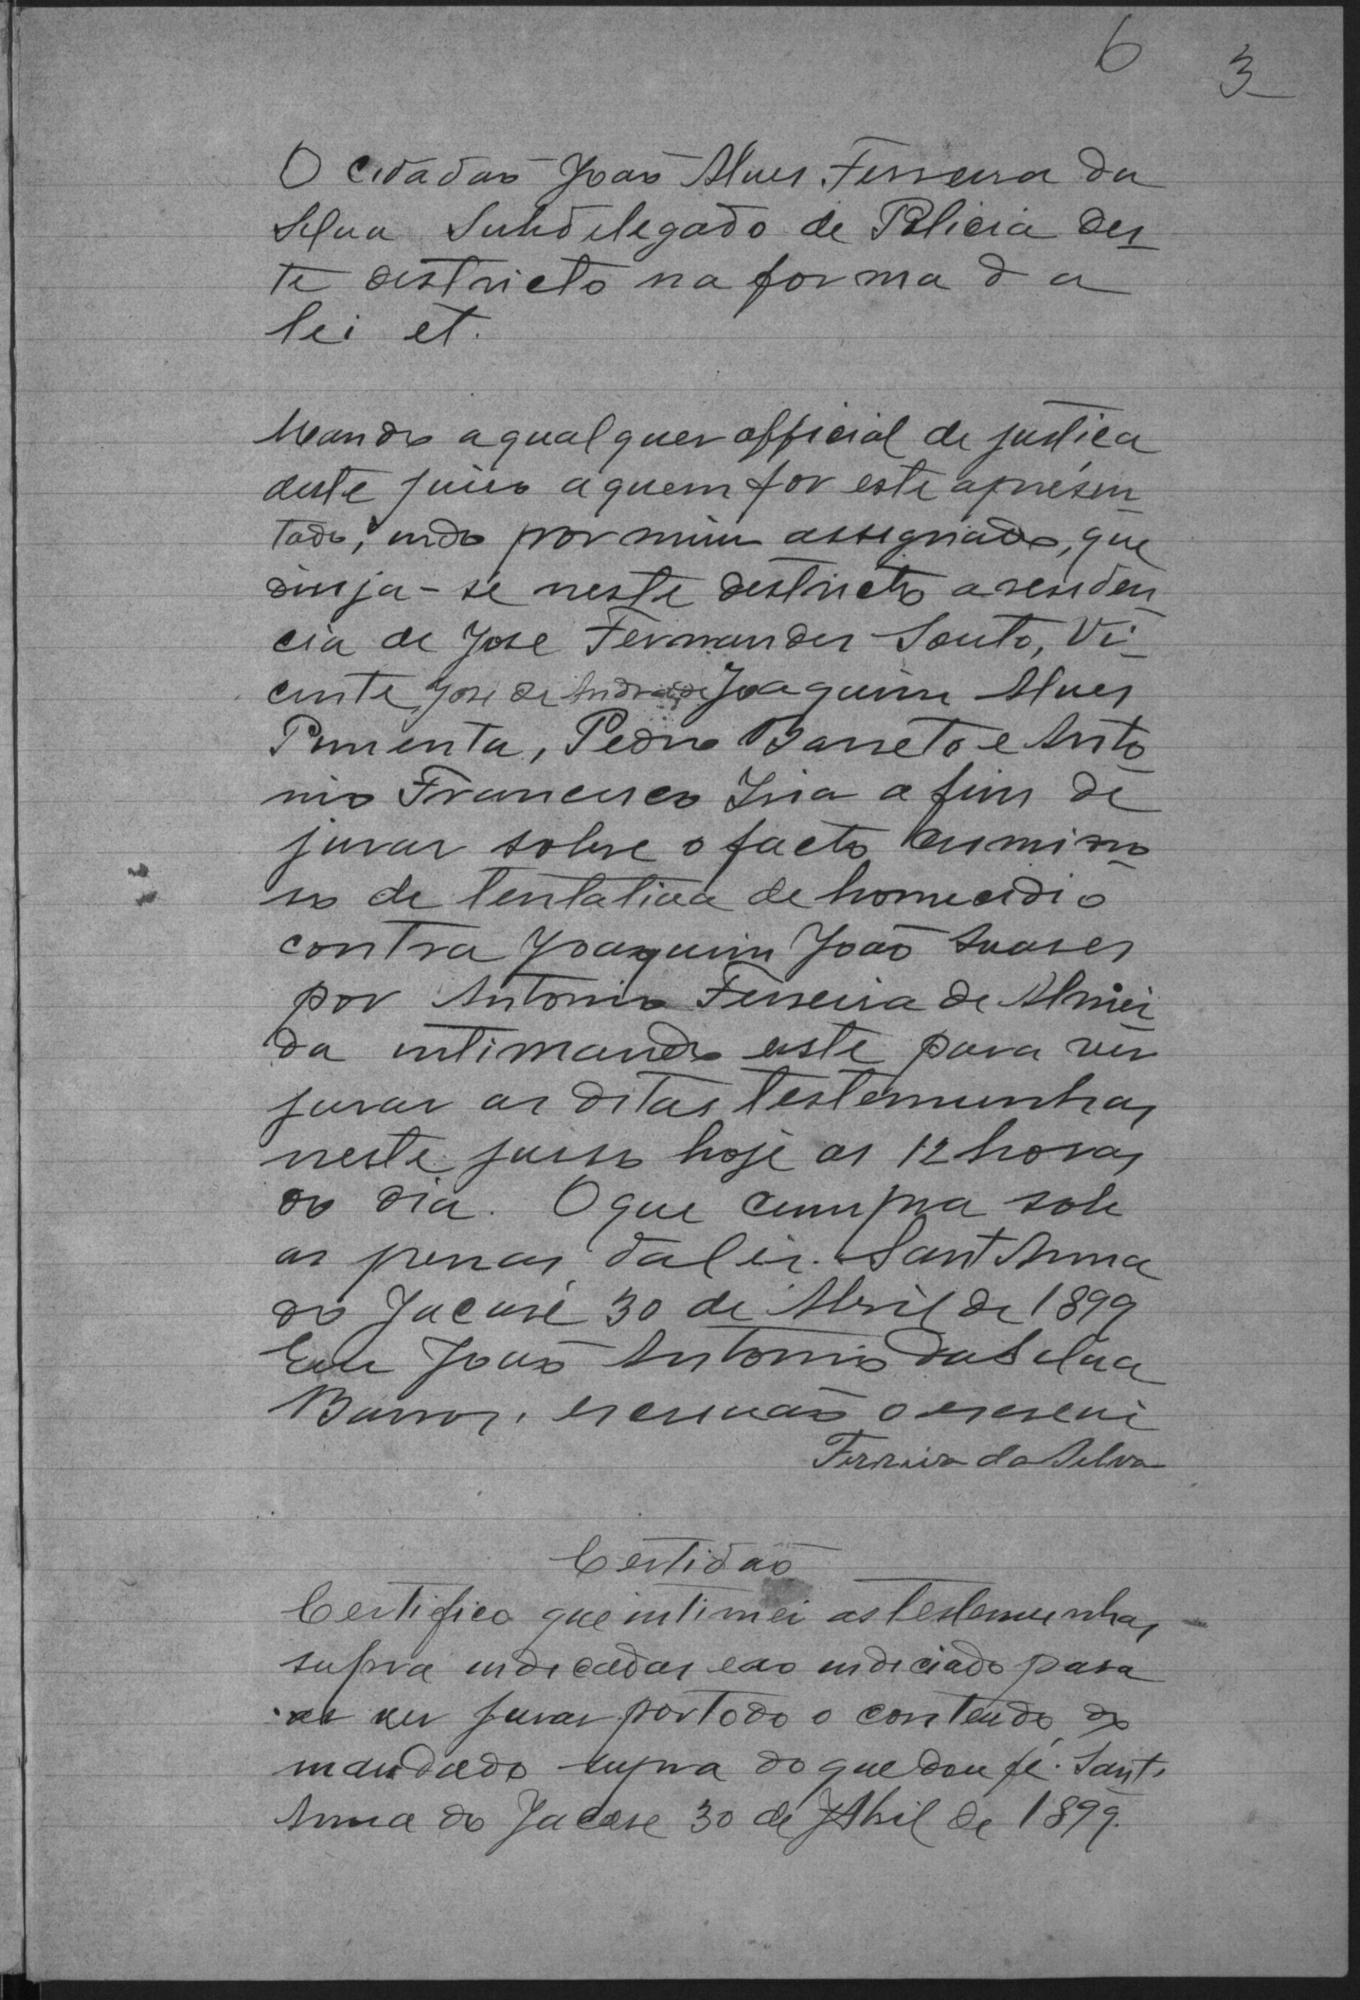 6 3
O cidadão João Alves Ferreira da
Silva Subdelegado de Policia des
te destricto na forma da
lei et.
Mando a qualquer official de justica
deste juiso a quem for este apresen
tado, indo por mim assignado, que
dirija-se neste destricto a residen
cia de Jose Fernandes Souto, Vi
cente Jose de Andrade Joaquim Alves
Pimenta, Pedro Barreto e Anto
nio Francisco Iria a fim de
jurar sobre o facto crimino
so de tentativa de homecidio
contra Joaquim João Soares
por Antonio Ferreira de Almei
da intimando este para ver
jurar as ditas testemunhas
neste juiso hoje as 12 horas
do dia. O que cumpra sob
as penas da lei. Sant Anna
do Jacaré 30 de Abril de 1899
Eu João Antonio da Silva
Barros, escrivão o escrevi
Ferreira da Silva
Certidão
Certifico que intimei as testemunhas
supra indicadas e ao indiciado para
as ver jurar por todo o conteudo do
mandado supra do que dou fé. Sant
Anna do Jacare 30 de Abril de 1899.